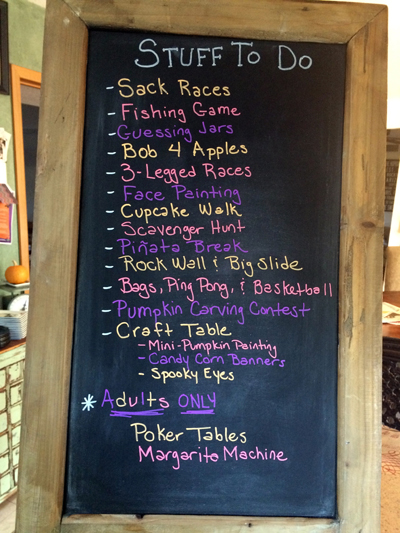 Stuff To Do
- Sack Races
- Fishing Game
- Guessing Jars
- Bob 4 Apples
- 3-Legged Races
- Face Painting
- Cupcake Walk
- Scavenger Hunt
- Piñata Break
- Rock Wall & Big Slide
- Bags, Ping Pong, & Basketball
- Pumpkin Carving Contest
- Craft Table
- Mini-Pumpkin Painting
- Candy Corn Banners
- Spooky Eyes
* Adults ONLY
Poker Tables
Margarita Machine